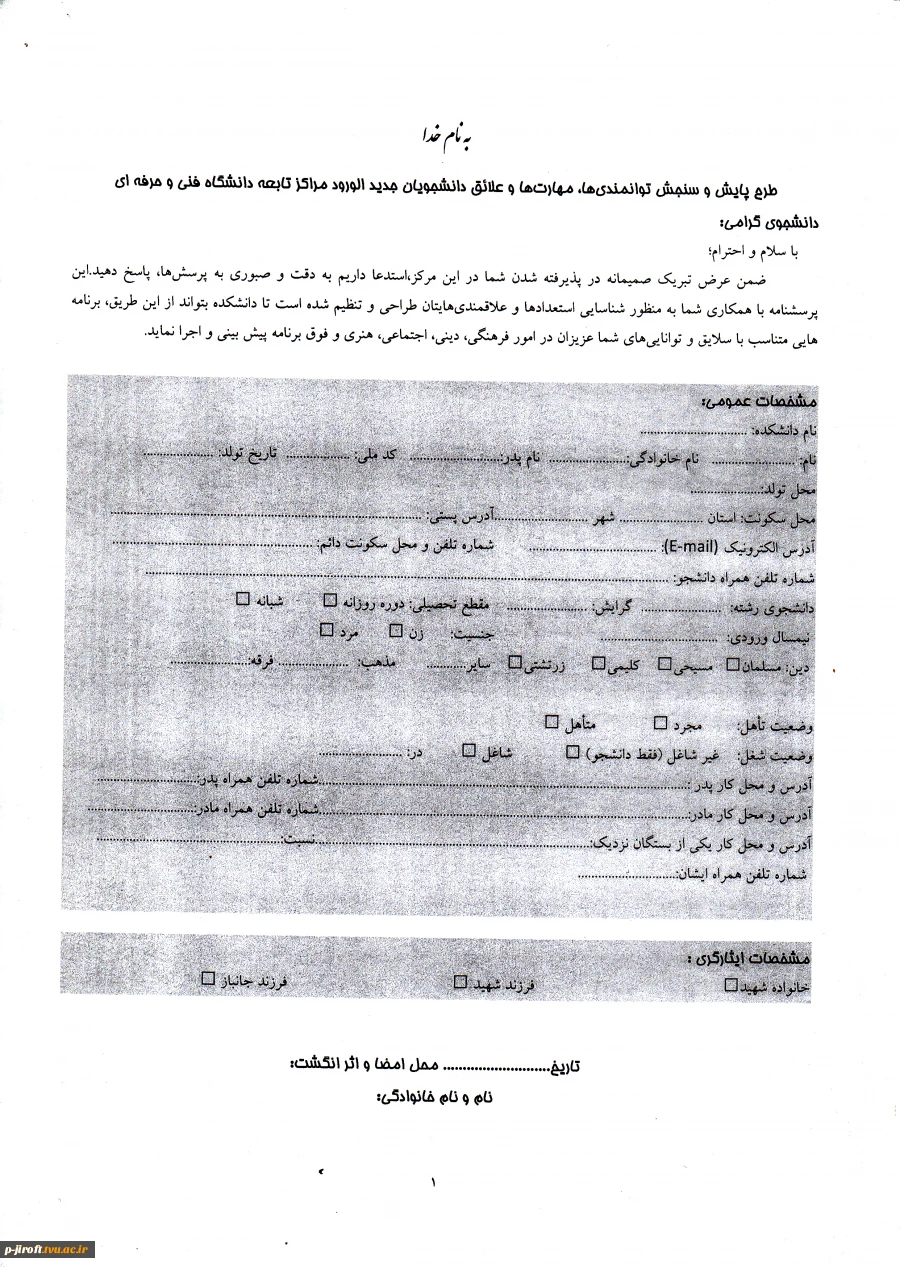 به نام خدا
طرح پایش و سنجش توانمندی‌ها، مهارت‌ها و علائق دانشجویان جدید الورود مراکز تابعه دانشگاه فنی و حرفه ای
دانشجوی گرامی:
با سلام و احترام؛
ضمن عرض تبریک صمیمانه در پذیرفته شدن شما در این مرکز،استدعا داریم به دقت و صبوری به پرسش‌ها، پاسخ دهید.این
پرسشنامه با همکاری شما به منظور شناسایی استعدادها و علاقمندی‌هایتان طراحی و تنظیم شده است تا دانشکده بتواند از این طریق، برنامه
هایی متناسب با سلایق و توانایی‌های شما عزیزان در امور فرهنگی، دینی، اجتماعی، هنری و فوق برنامه پیش بینی و اجرا نماید.
مشخصات عمومی:
نام دانشکده: ...........................
نام: ..................... نام خانوادگی:.................... نام پدر:....................... کد ملی: ................ تاریخ تولد: ..................
محل تولد:..................
محل سکونت: استان ..................... شهر ........................آدرس پستی: ................................................................................
آدرس الکترونیک (E-mail): ................................ شماره تلفن و محل سکونت دائم:....................................................
شماره تلفن همراه دانشجو: ........................................................................................................................................
دانشجوی رشته: .................... گرایش: ..................... مقطع تحصیلی: دوره روزانه □ شبانه □
نیمسال ورودی: .............................. جنسیت: زن □ مرد □
دین: مسلمان□ مسیحی□ کلیمی□ زرتشتی□ سایر.......... مذهب: .................. فرقه:....................
وضعیت تأهل: مجرد □ متأهل □
وضعیت شغل: غیر شاغل (فقط دانشجو) □ شاغل □ در: .....................
آدرس و محل کار پدر :..............................................................................................شماره تلفن همراه پدر:..........................
آدرس و محل کار مادر:..............................................................................................شماره تلفن همراه مادر:..........................
آدرس و محل کار یکی از بستگان نزدیک:......................................................................نسبت:..............................................
شماره تلفن همراه ایشان:.........................
مشخصات ایثارگری :
خانواده شهید□ فرزند شهید □ فرزند جانباز □
تاریخ........................... محل امضا و اثر انگشت:
نام و نام خانوادگی:
۱
p-jiroft.tvu.ac.ir